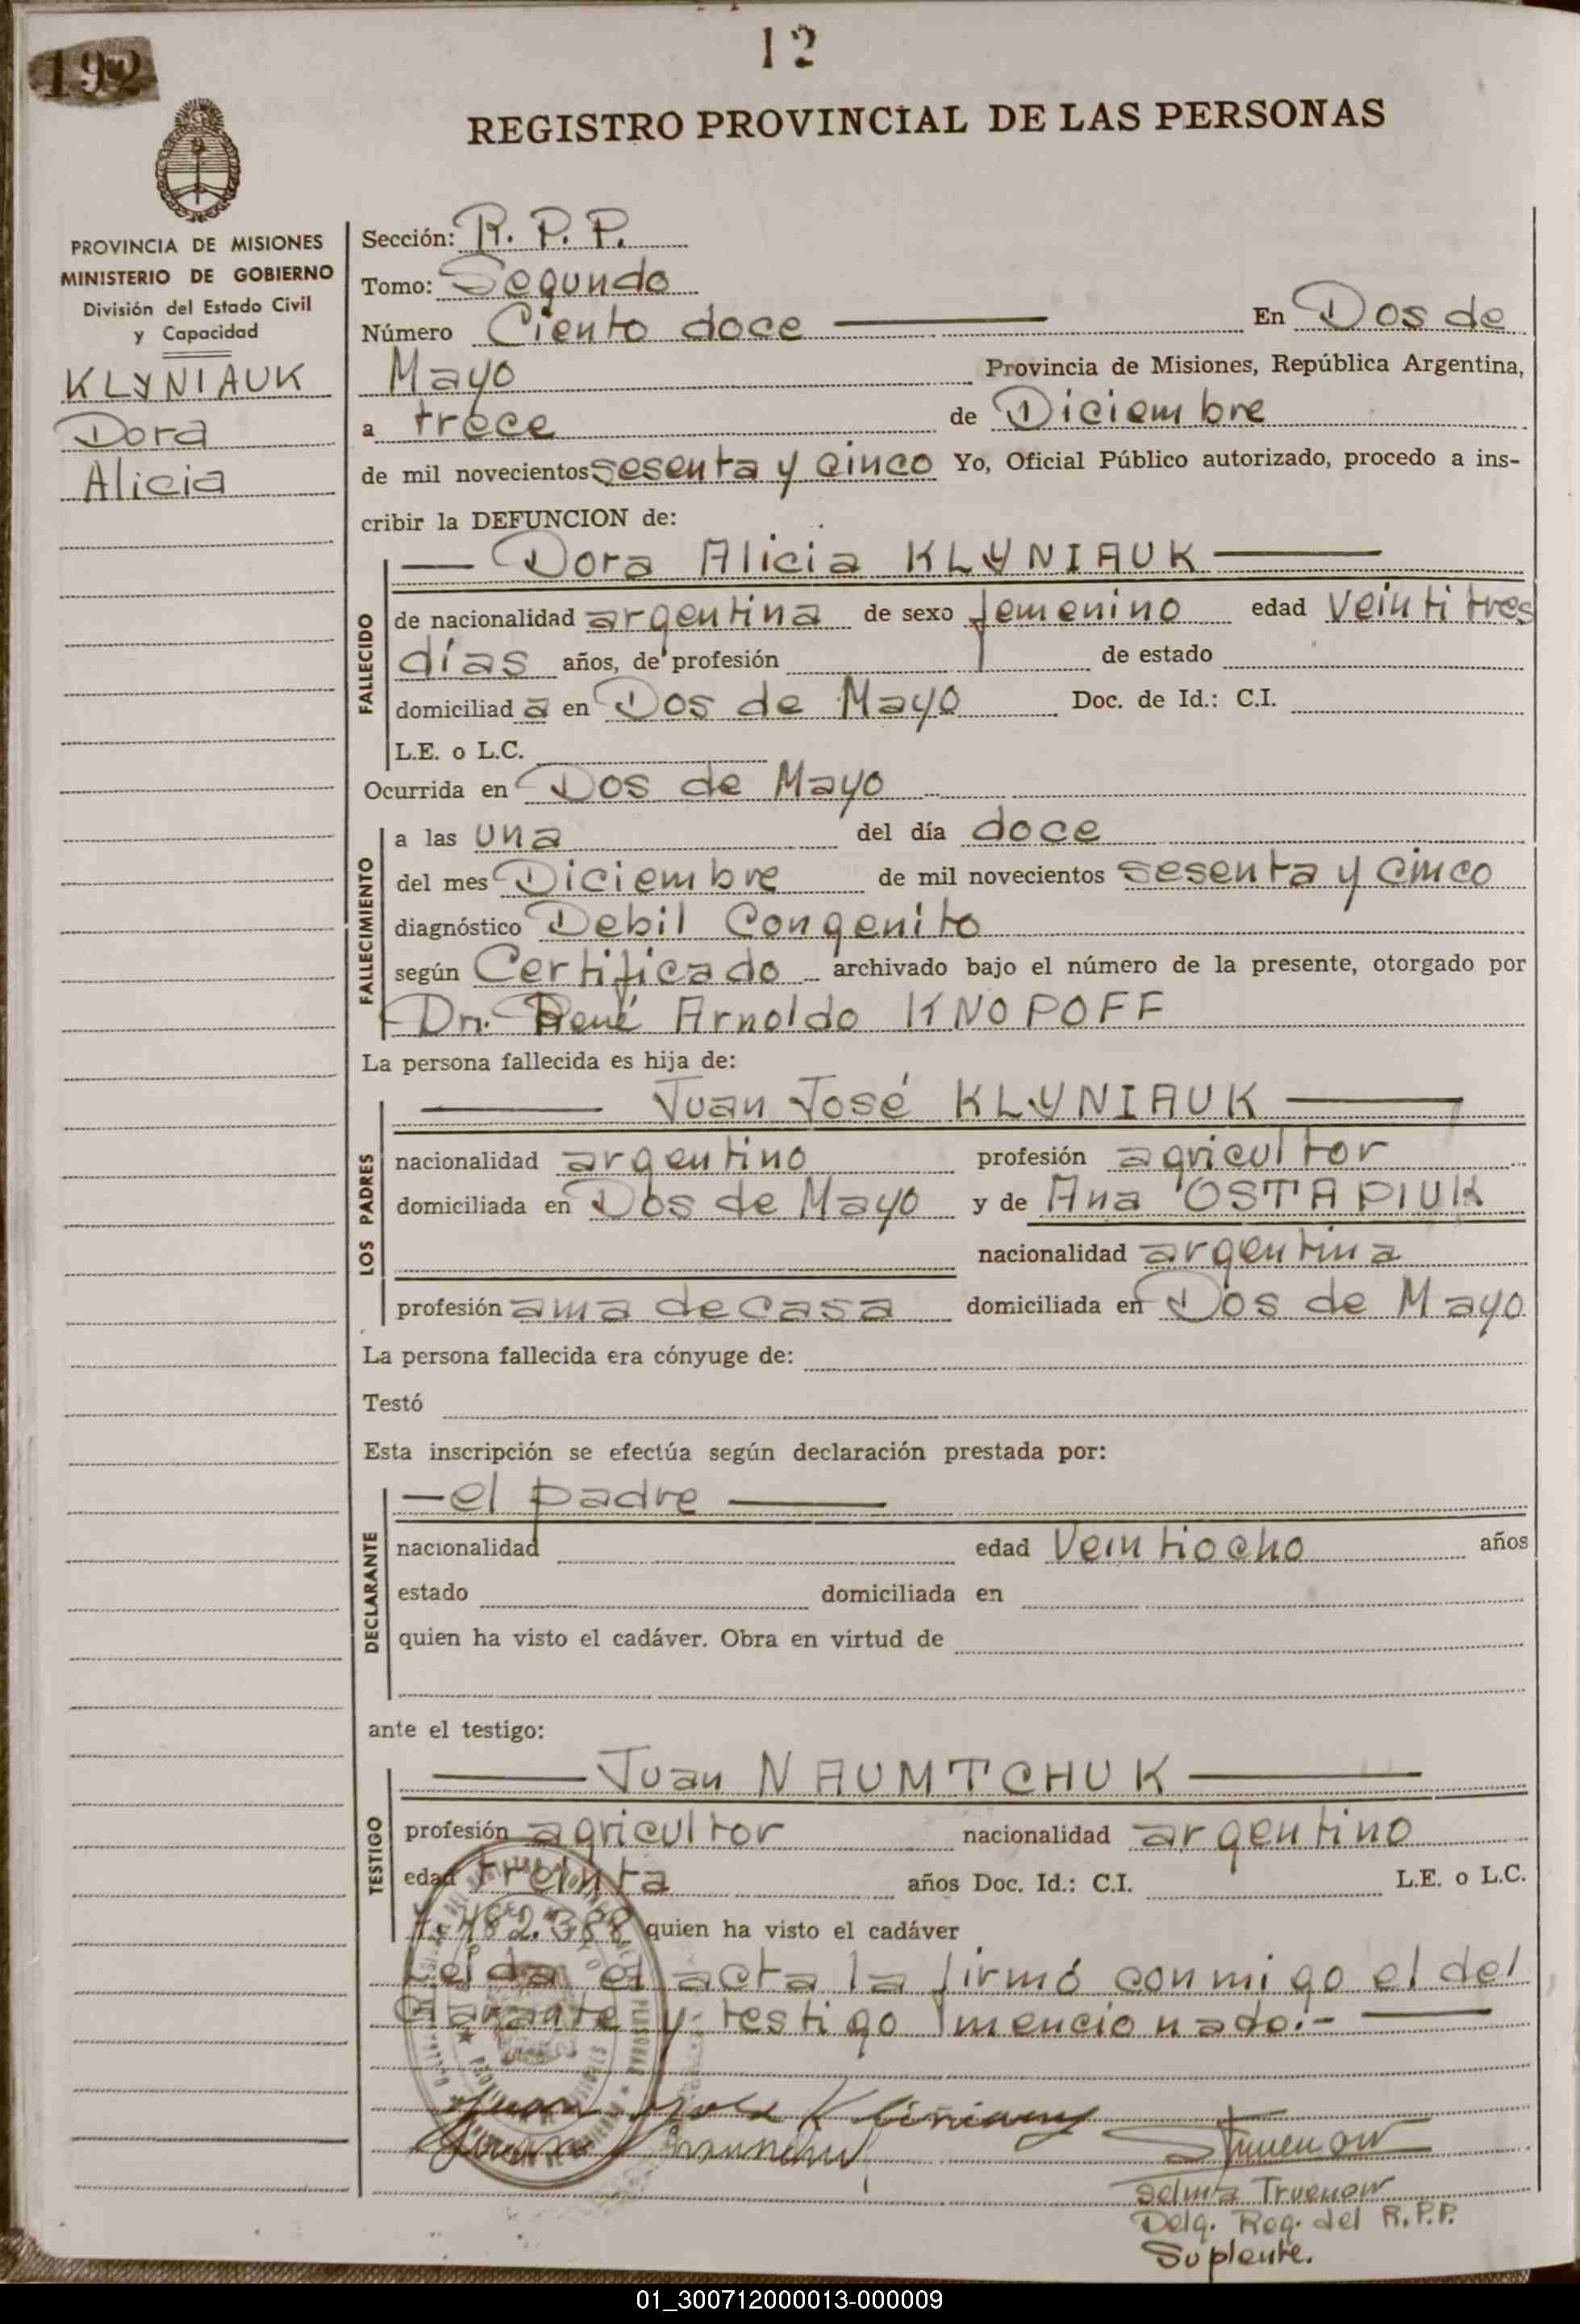 12
192
REGISTRO PROVINCIAL DE LAS PERSONAS
PROVINCIA DE MISIONES
MINISTERIO DE GOBIERNO
División del Estado Civil
y Capacidad
KLYNIAUK
Dora
Alicia
Sección: R. P. P.
Tomo: Segundo
Número Ciento doce En Dos de
Mayo Provincia de Misiones, República Argentina,
a trece de Diciembre
de mil novecientos sesenta y cinco Yo, Oficial Público autorizado, procedo a ins-
cribir la DEFUNCION de:
Dora Alicia KLYNIAUK
FALLECIDO
de nacionalidad argentina de sexo femenino edad veintitres
días años, de profesión de estado
domiciliad a en Dos de Mayo Doc. de Id.: C.I.
L.E. o L.C.
Ocurrida en Dos de Mayo
FALLECIMIENTO
a las una del día doce
del mes Diciembre de mil novecientos sesenta y cinco
diagnóstico Debil Congenito
según Certificado archivado bajo el número de la presente, otorgado por
Dr. René Arnoldo KNOPOFF
La persona fallecida es hija de:
Juan José KLYNIAUK
LOS PADRES
nacionalidad argentino profesión agricultor
domiciliada en Dos de Mayo y de Ana OSTAPIUK
nacionalidad argentina
profesión ama de casa domiciliada en Dos de Mayo
La persona fallecida era cónyuge de:
Testó
Esta inscripción se efectúa según declaración prestada por:
el padre
DECLARANTE
nacionalidad edad Veintiocho años
estado domiciliada en
quien ha visto el cadáver. Obra en virtud de
ante el testigo:
Juan NAUMTCHUK
TESTIGO
profesión agricultor nacionalidad argentino
edad treinta años Doc. Id.: C.I. L.E. o L.C.
7.482.388 quien ha visto el cadáver
Leida el acta la firmó conmigo el del
clarante y testigo mencionado.-
Juan José
Juan
Selma Truenow
Delg. Reg. del R.P.P.
Suplente.
01_300712000013-000009